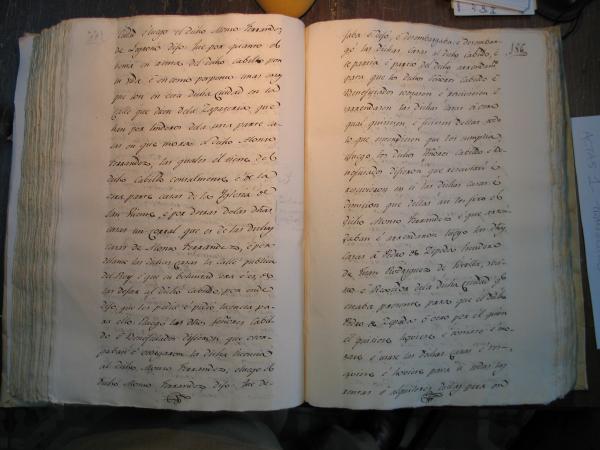 luego el dicho Alonso Fernandez
de Logroño dijo que por quanto el
tome en arrenta del dicho cabildo por
su vida, é en como perpetuo unas casas
que son en esta dicha Ciudad en la
calle que dicen dela Zapateria, que
han por linderos dela una parte ca-
sas en que mora el dicho Alonso
Fernandez, las quales él tiene del
dicho Cabildo censualmente, é de la
otra parte casas de la Yglesia de
San Vicente, é por detras delas dichas
casas un corral que es de las dichas
casas de Alonso Fernandez, é por
delante las dichas casas la calle publica
del Rey, é que su boluntad era é es de
las dejar al dicho cabildo, por ende
dijo, que les pedia é pidio licencia para
ello, luego los dhos. señores Cabil-
do é Beneficiados dijeron, que otor-
gaban é otorgaron la dicha licencia
al dicho Alonso Fernandez, é luego el
dicho Alonso Fernandez dijo que de-
186
jaba é dejo, é desembargaba é desembar-
gó las dichas casas al dicho cabildo, é
se partia é partio del dicho arrendamto.
para que los dichos señores Cabildo é
Beneficiados tomasen é reciviesen é
arrendasen las dichas casas á otro
qual quisiesen é ficiesen dellas todo
lo que entendiesen que les cumplia,
é luego los dichos señores Cabildo é Be-
neficiados dijeron que recivian é
recivieron en si las dichas casas é
dimision que dellas asi les fizo el
dicho Alonso Fernandez é que arren-
daban é arrendaron luego las dhas.
casas á Pedro de Zepeda heredero
de Juan Rodriguez de Sevilla, veci-
no é Regidor dela dicha ciudad qe.
estaba presente para que el dicho
Pedro de Zepeda ó otro por él quien
él quisiere toviere é morare é mo-
rase é usare las dichas casas é to-
viere é hoviere para si todas las
rentas é alquileres dellas para en